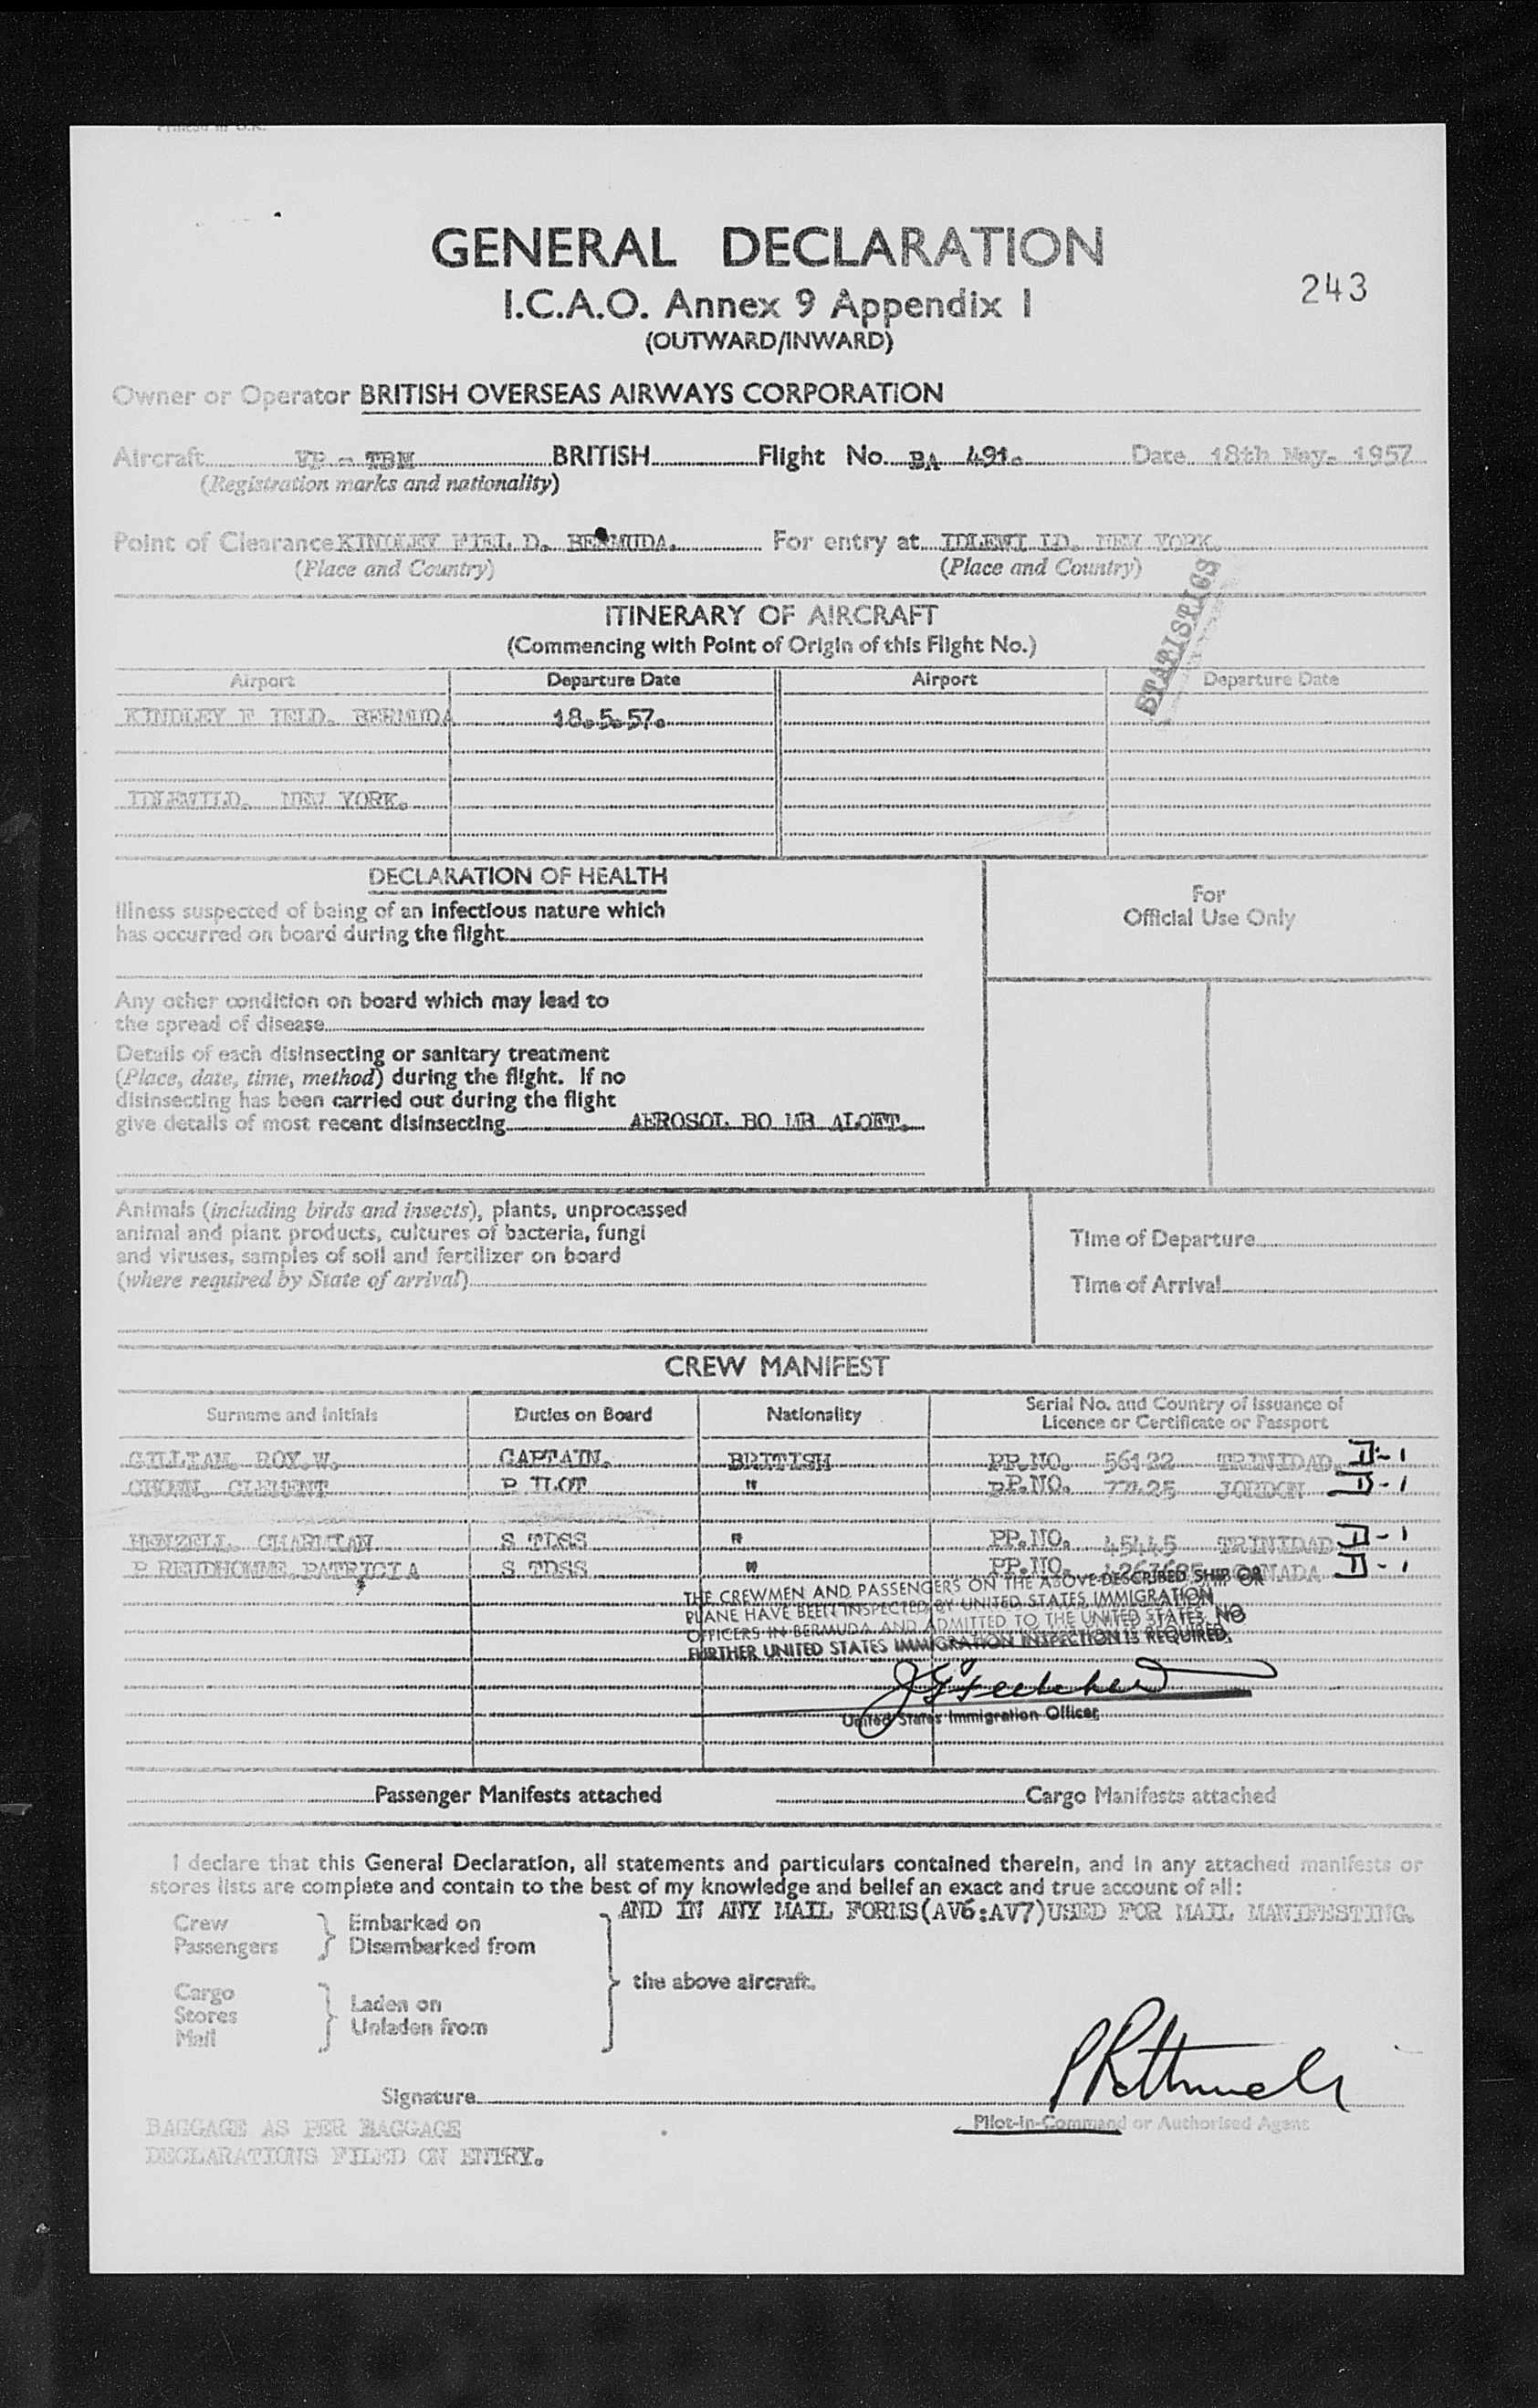 GENERAL DECLARATION
243
I.C.A.O. Annex 9 Appendix 1
(OUTWARD/INWARD)
Owner or Operator BRITISH OVERSEAS AIRWAYS CORPORATION
Aircraft VP - TBM BRITISH Flight No. BA 491. Date 18th May. 1957
(Registration marks and nationality)
Point of Clearance KINDLEY FIEL D. BERMUDA. For entry at IDLEWI LD. NEW YORK.
(Place and Country) (Place and Country)
STATISTICS
ITINERARY OF AIRCRAFT
(Commencing with Point of Origin of this Flight No.)
Airport Departure Date Airport Departure Date
KINDLEY F IELD. BERMUDA 18.5.57.
IDLEWILD. NEW YORK.
DECLARATION OF HEALTH
For
Official Use Only
Illness suspected of being of an infectious nature which
has occurred on board during the flight
Any other condition on board which may lead to
the spread of disease
Details of each disinsecting or sanitary treatment
(Place, date, time, method) during the flight. If no
disinsecting has been carried out during the flight
give details of most recent disinsecting AEROSOL BO MB ALOFT.
Animals (including birds and insects), plants, unprocessed
animal and plant products, cultures of bacteria, fungi
and viruses, samples of soil and fertilizer on board
(where required by State of arrival)
Time of Departure
Time of Arrival
CREW MANIFEST
Surname and Initials Duties on Board Nationality Serial No. and Country of Issuance of
Licence or Certificate or Passport
GILLIAM. ROY.W. CAPTAIN. BRITISH PP.NO. 56122 TRINIDAD. D-1
CLEMENT P ILOT " PP.NO. 77425 JORDON D-1
HENZELL. CHARMIAN S TDSS " PP.NO. 45445 TRINIDAD D-1
P REUDHOMME. PATRICIA S TDSS " PP.NO. CANADA D-1
THE CREWMEN AND PASSENGERS ON THE ABOVE DESCRIBED SHIP OR
PLANE HAVE BEEN INSPECTED BY UNITED STATES IMMIGRATION
OFFICERS IN BERMUDA AND ADMITTED TO THE UNITED STATES. NO
FURTHER UNITED STATES IMMIGRATION INSPECTION IS REQUIRED.
United States Immigration Officer
Passenger Manifests attached Cargo Manifests attached
I declare that this General Declaration, all statements and particulars contained therein, and in any attached manifests or
stores lists are complete and contain to the best of my knowledge and belief an exact and true account of all:
AND IN ANY MAIL FORMS(AV6:AV7)USED FOR MAIL MANIFESTING.
Crew Embarked on
Passengers Disembarked from
the above aircraft.
Cargo
Stores Laden on
Mail Unladen from
Signature
Pilot-in-Command or Authorised Agent
BAGGAGE AS PER BAGGAGE
DECLARATIONS FILED ON ENTRY.